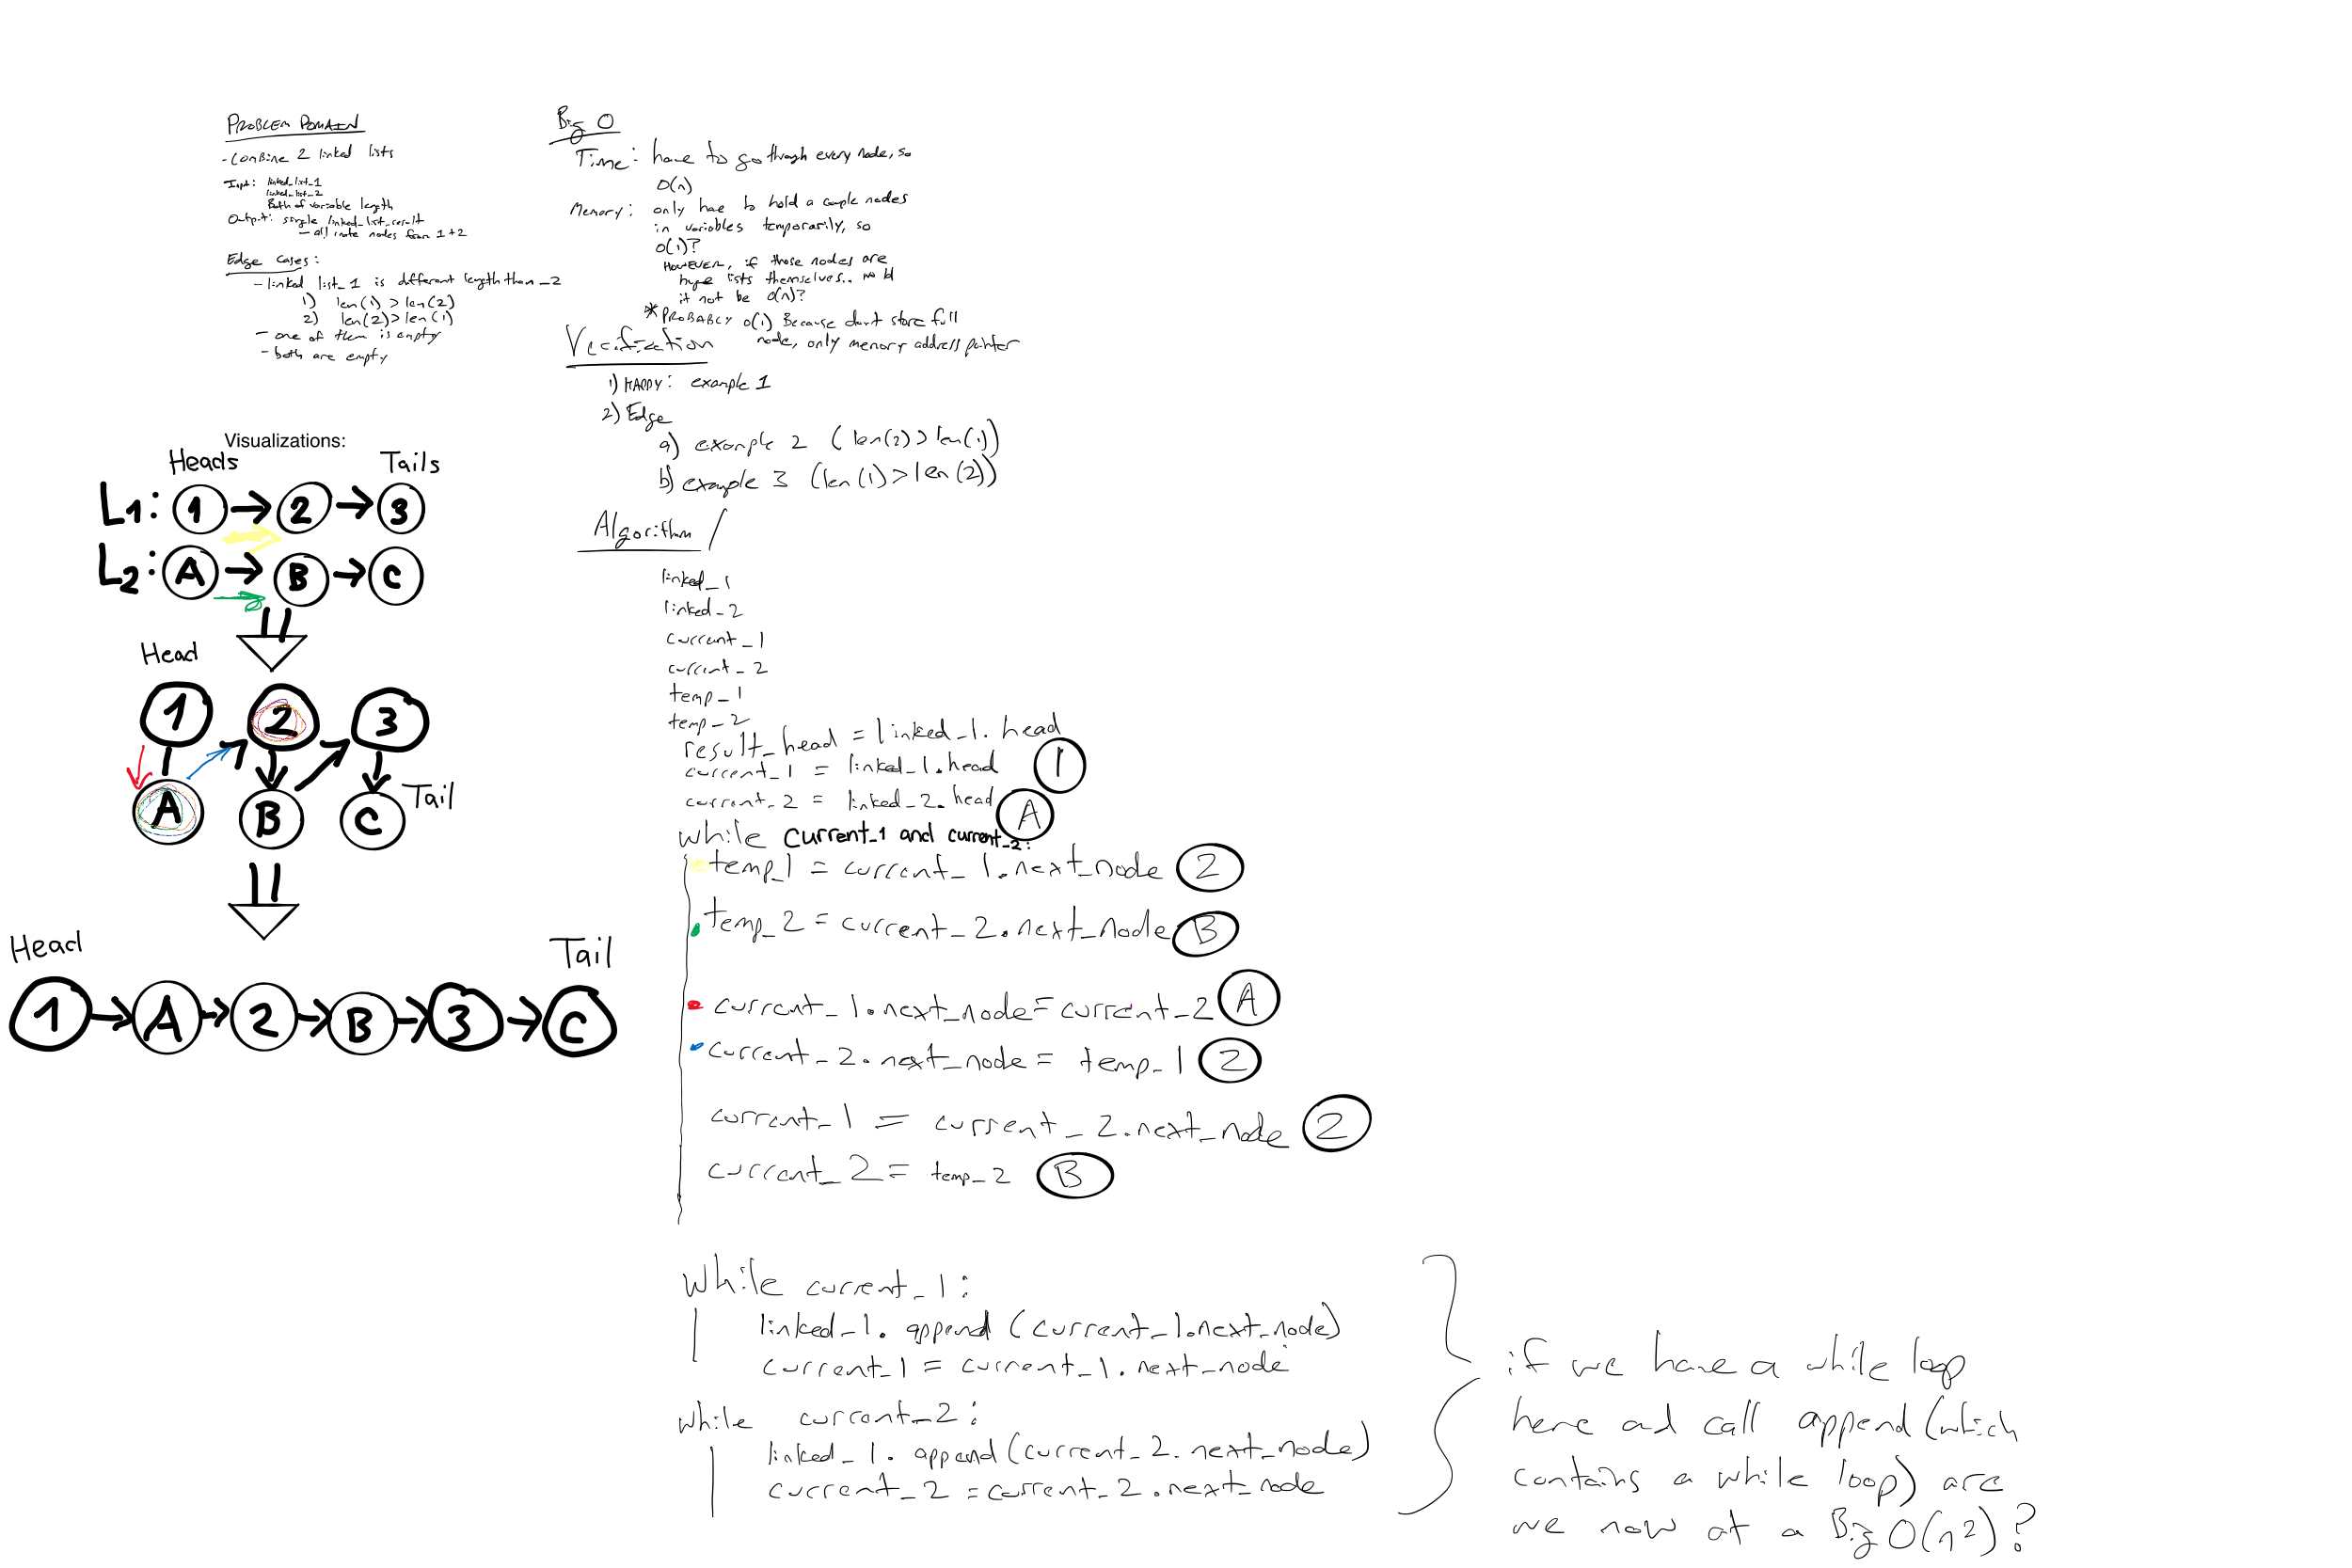 PROBLEM DOMAIN
- Combine 2 linked lists
Input: linked_list_1
linked_list_2
Both of variable length
Output: single linked_list_result
- all nodes from 1+2
Edge Cases:
- linked list_1 is different length than _2
1) len(1) > len(2)
2) len(2) > len(1)
- one of them is empty
- both are empty
Visualizations:
Heads Tails
L1: 1 → 2 → 3
L2: A → B → C
Head
1 2 3
A B C Tail
Head Tail
1 → A → 2 → B → 3 → C
Big O
Time: have to go through every node, so
O(n)
Memory: only have to hold a couple nodes
in variables temporarily, so
O(1)?
HOWEVER, if those nodes are
huge lists themselves.. would
it not be O(n)?
* PROBABLY O(1) Because don't store full
node, only memory address pointer
Verification
1) HAPPY: example 1
2) Edge
a) example 2 (len(2) > len(1))
b) example 3 (len(1) > len(2))
Algorithm /
linked_1
linked_2
current_1
current_2
temp_1
temp_2
result_head = linked_1.head
current_1 = linked_1.head 1
current_2 = linked_2.head A
while current_1 and current_2:
temp_1 = current_1.next_node 2
temp_2 = current_2.next_node B
current_1.next_node = current_2 A
current_2.next_node = temp_1 2
current_1 = current_2.next_node 2
current_2 = temp_2 B
while current_1:
linked_1.append(current_1.next_node)
current_1 = current_1.next_node
while current_2:
linked_1.append(current_2.next_node)
current_2 = current_2.next_node
if we have a while loop
here and call append (which
contains a while loop) are
we now at a Big O(n²)?